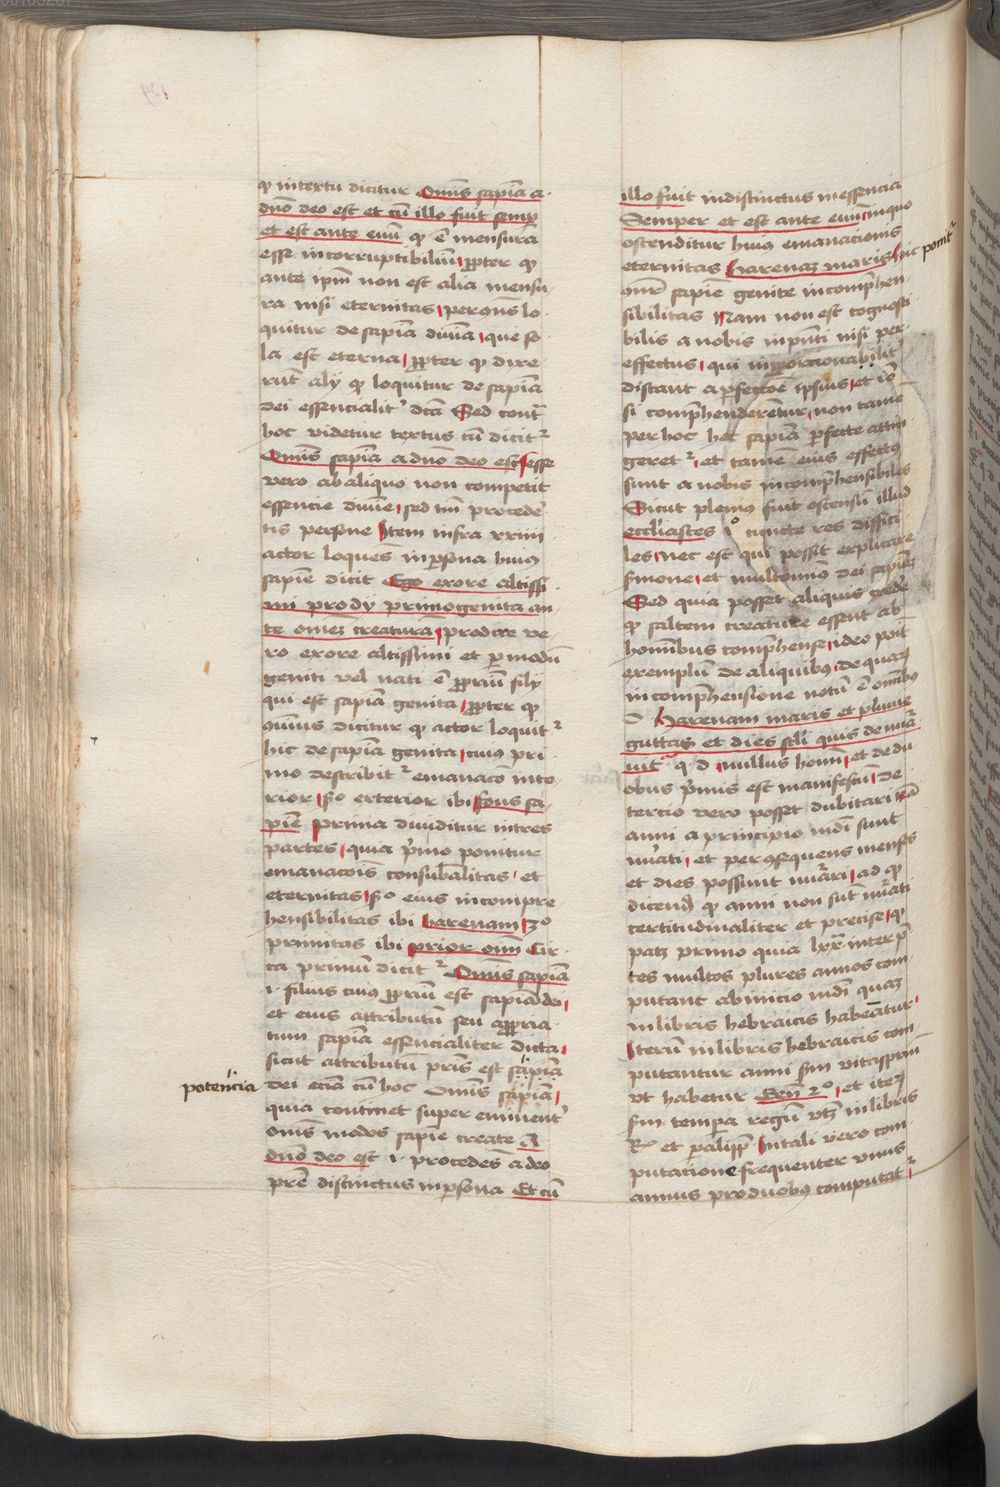 qꝫ in textu dicitur Omīs sapīa a
dn̄o deo est et cū illo fuit semꝑ
et est ante euū qꝫ ē mensura
esse incorruptibiliū ꝓpter qꝫ
ante ip̄m non est alia mensu
ra nisi eternitas ꝑ conn̄s lo
quitur de sapīa diuīa que so
la est eterna ꝓpter qꝫ dixe
rūt alij qꝫ loquitur de sapīa
dei essencialitʼ dc̄a Sed contʼ
hoc videtur textus cū dicitʼ
Omīs sapīa a dn̄o deo est esse
vero ab aliquo non competit
essencie diuīe sed mʼ procedē
tis persone Item infra xxiiii
actor loquēs in ꝑsona huiꝰ
sapīe dicit Ego ex ore altissi
mi prodij primogenita an
te omēꝫ creaturā prodire ve
ro ex ore altissimi et ꝑ modū
geniti vel nati ē ꝓpriū filij
qui est sapīa genita ꝓpter qꝫ
dicitur qꝫ actor loquitʼ
hic de sapīa genita cuiꝰ pri
mo describitʼ emanacō inte
rior sº exterior ibi fons sa
pīe prima diuiditur in tres
partes quia pʼmo ponitur
emanacōis consūbalitas et
eternitas sº eius incompre
hensibilitas ibi harenam 3º
primitas ibi prior oīm Cir
ca primū dicitʼ Omīs sapīa
i filius cuiꝰ ꝓpriū est sapīa dei
et eius attributū seu apꝓpria
tum sapīa essencialiter dicta
sicut attributū prīs est sapīa
potencia
dei eciā cū hoc Omīs sapīa
quia continet super eminentʼ
omīs modos sapīe create A
dn̄o deo est i procedēs a deo
prē distinctus in ꝑsona Et cū
illo fuit indistinctus in essencia
Semper et est ante euū in quo
ostenditur huiꝰ emanacionis
eternitas harenaꝫ maris hic
ponitʼ
sapīe genite incomprehen
sibilitas Nam non est cognosci
bilis a nobis in pn̄ti nisi per
effectus qui inꝓporcionabilitʼ
distant a ꝑfectōe ipsius et iō
si comprehenderentur non tamē
per hoc hec sapīa ꝑfecte attin
geretʼ et tamē eius effectꝰ
sunt a nobis incomprehensibiles
Sicut pleniꝰ fuit ostensū illud
ecclīastes iº cuncte res diffici
les nec est qui possit explicare
sermone et multomīō dei sapīeꝫ
Sed quia posset aliquis credeʼ
qꝫ saltem creature essent ab
homībus comprehense ideo ponitʼ
exemplū de aliquibꝰ de quaꝝ
incomprehensione notū ē omībꝰ
Harenam maris et pluuie
guttas et dies sclī quis dinūa
uit q d nullus homī et de du
obus pʼmis est manifestū de
tercio vero posset dubitari cū
anni a principio mūdi sunt
nūati et per ꝯsequens menses
et dies possunt nūari ad qꝫ
dicendū qꝫ anni non sūt nūati
certitudinaliter et precise qꝫ
patꝫ primo quia lxxª interp̄
tes multos plures annos com
putant ab inicio mūdi quaꝫ
in libris hebraicis habeātur
Iterū in libris hebraicis com
putantur anni sʼm vitas patrū
vt habetur Geñ 2º et iteꝝ
sʼm tempora regū vtꝫ in libris
Rʼ et ꝑalippʼ In tali vero com
putatione frequenter vnus
annus pro duobꝰ computatʼ